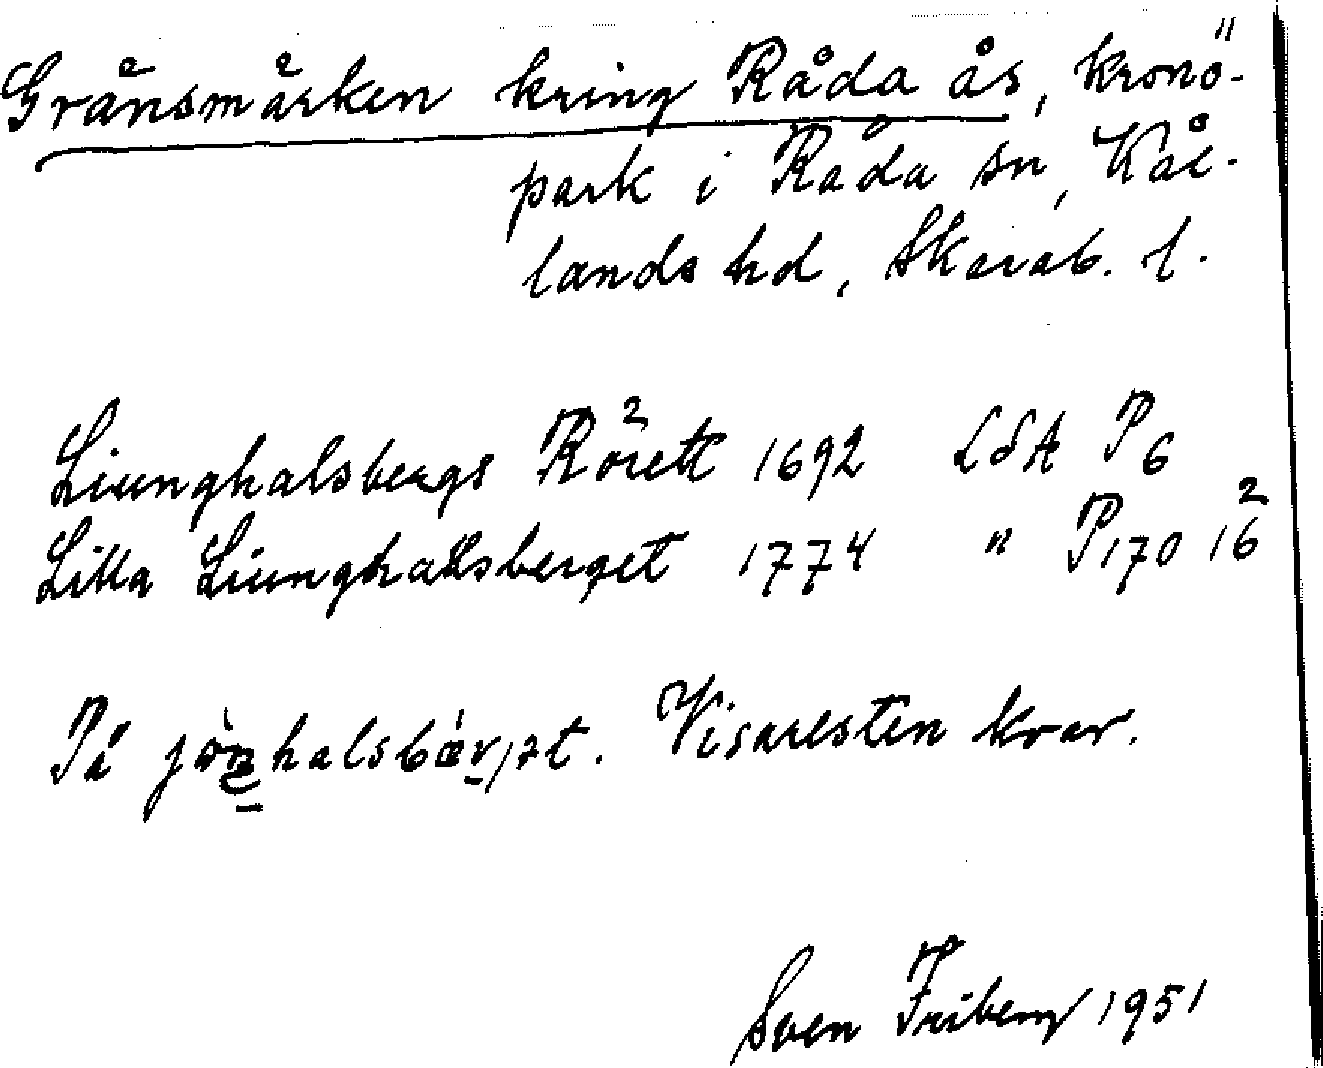 Gränsmärken kring Råda ås, krono-
park i Råda sn, Kål-
lands hd, Skarab. l.
Liunghalsbergs Rörett 1692 LSA P 6
Lilla Liunghallsberget 1774 " P 170 16²
På Visaresten kvar.
Sven Friberg 1951